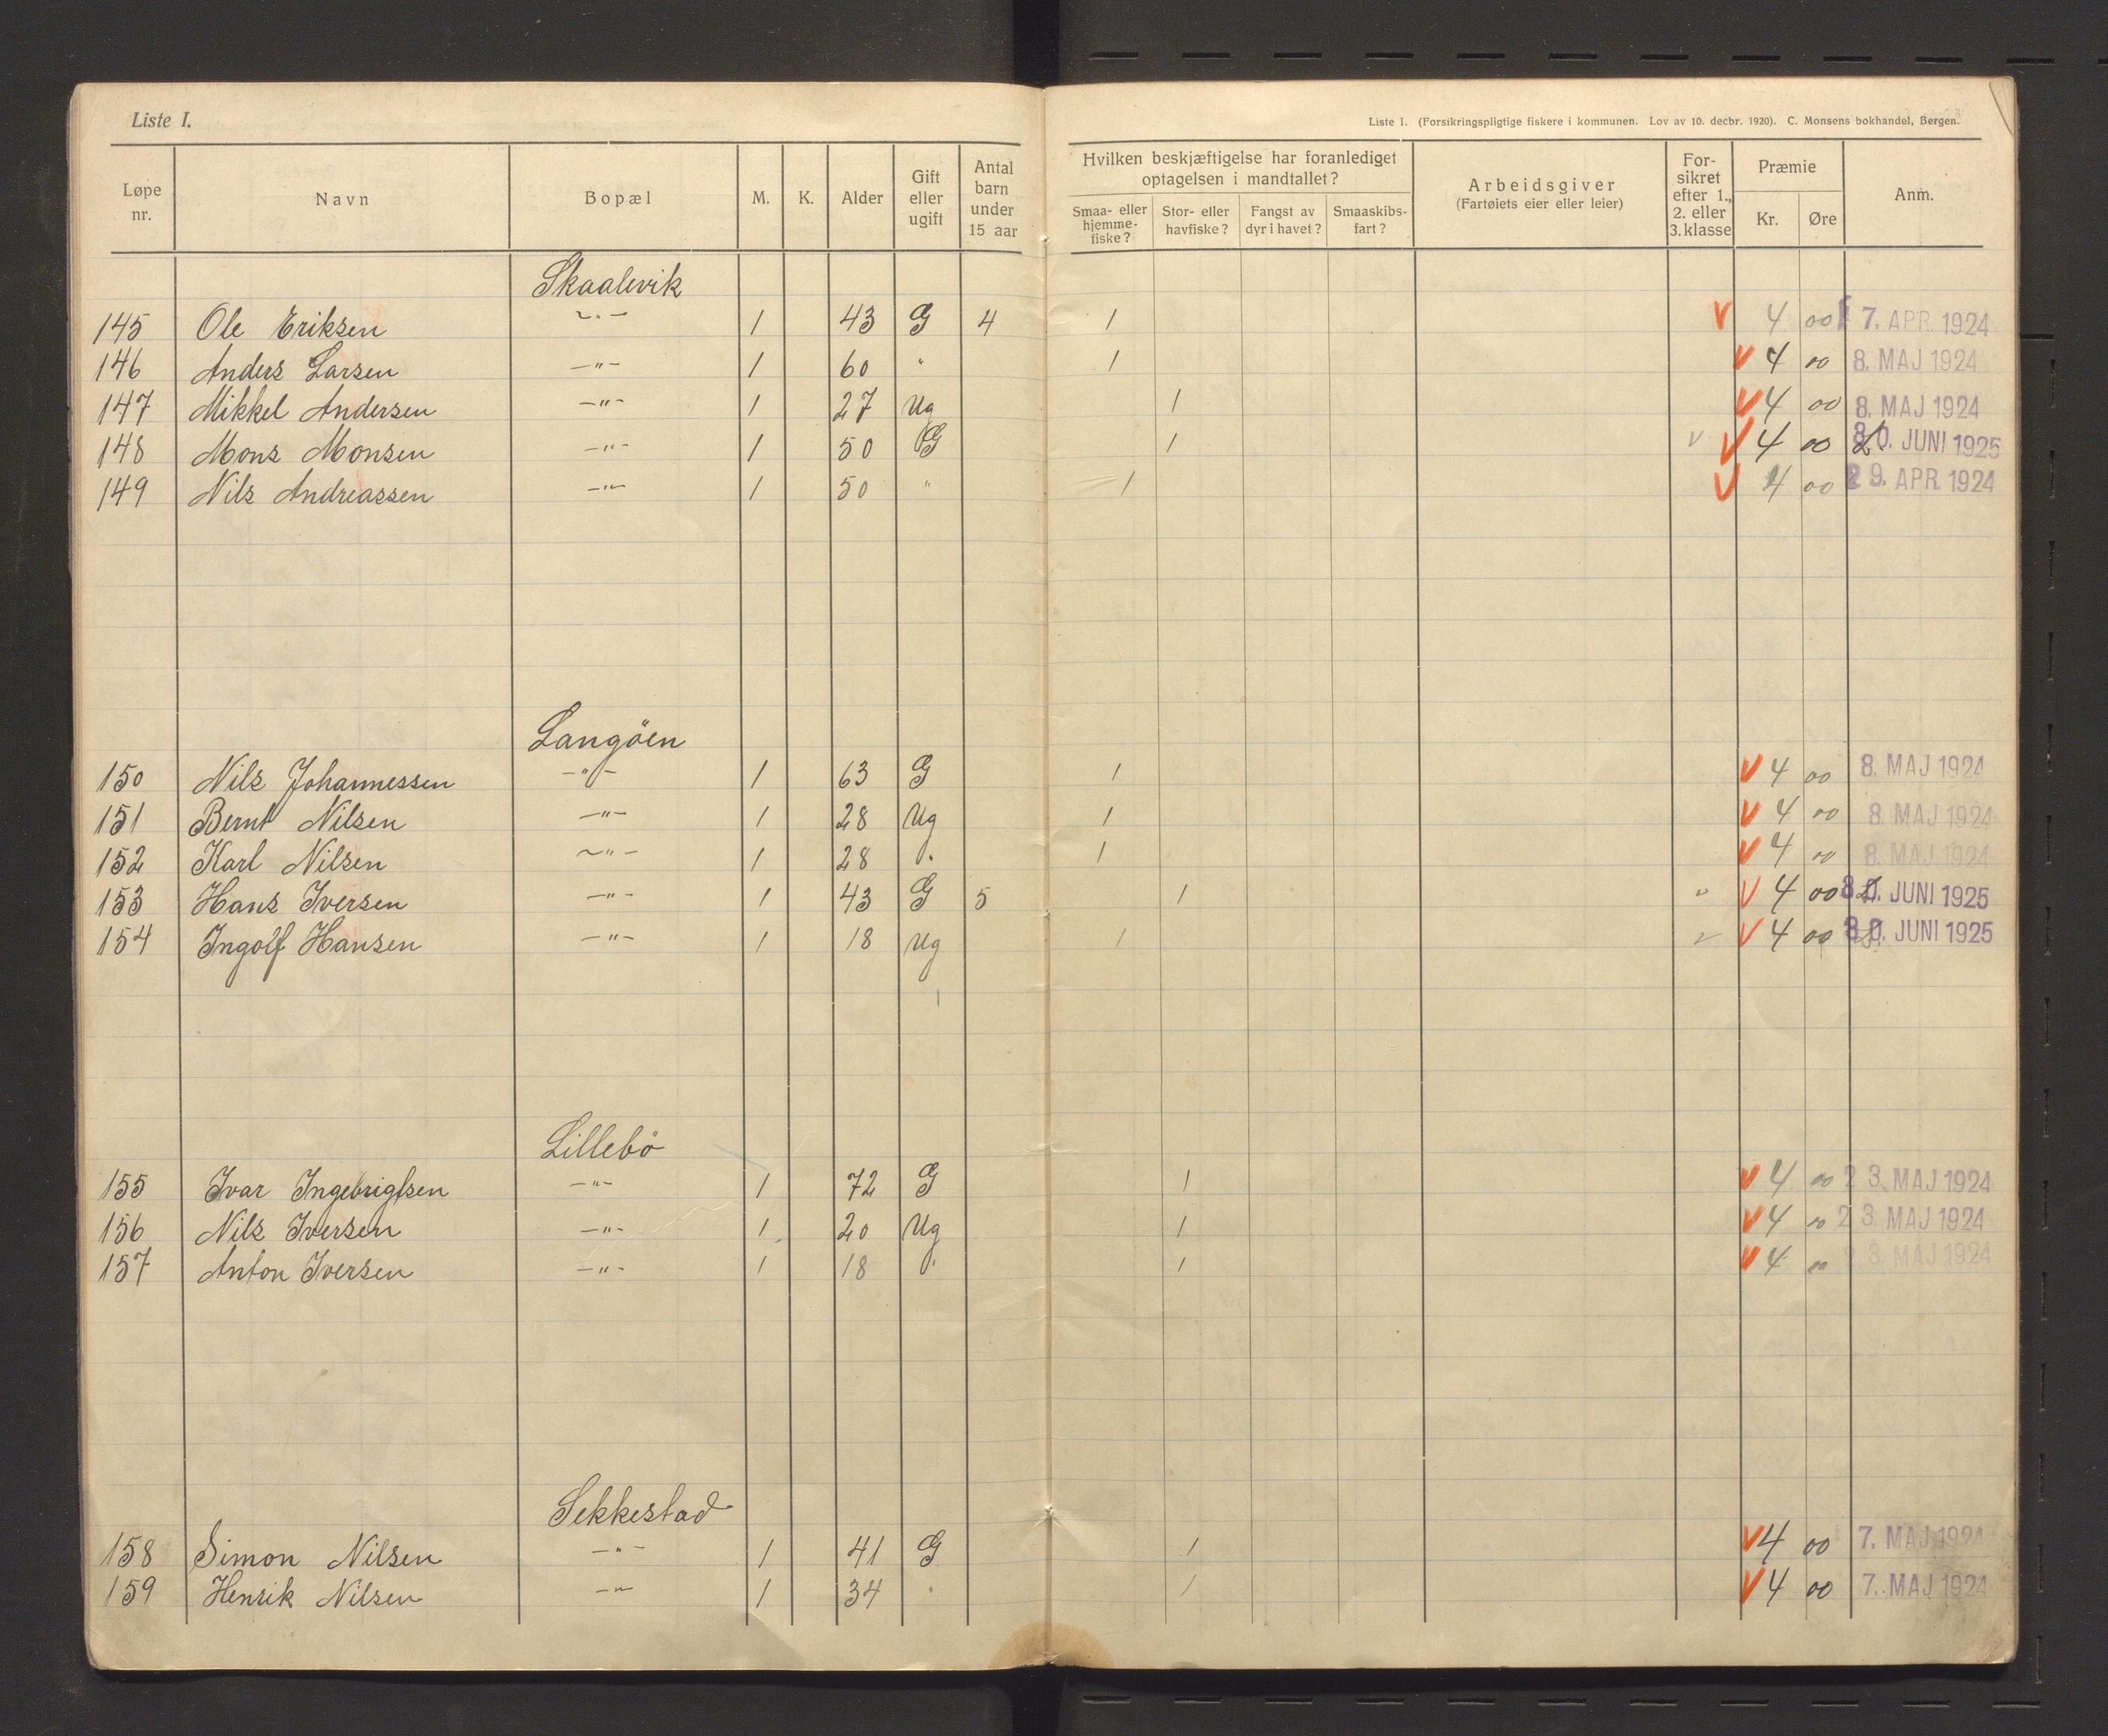 Liste I.
Liste 1. (Forsikringspligtige fiskere i kommunen. Lov av 10. decbr. 1920). C. Monsens bokhandel, Bergen.
Løpe nr. Navn Bopæl M. K. Alder Gift eller ugift Antal barn under 15 aar Hvilken beskjæftigelse har foranlediget optagelsen i mandtallet? Smaa- eller hjemme-fiske? Stor- eller havfiske? Fangst av dyr i havet? Smaaskibs-fart? Arbeidsgiver (Fartøiets eier eller leier) For-sikret efter 1., 2. eller 3. klasse Præmie Kr. Øre Anm.
Skaalevik
145 Ole Eriksen -„- 1 43 G 4 1 V 4 00 7. APR. 1924
146 Anders Larsen -„- 1 60 " 1 V 4 00 8. MAJ 1924
147 Mikkel Andersen -„- 1 27 Ug 1 V 4 00 8. MAJ 1924
148 Mons Monsen -„- 1 50 G 1 v V 4 00 30. JUNI 1925
149 Nils Andreassen -„- 1 50 " 1 V 4 00 29. APR. 1924
Langöen
150 Nils Johannessen -„- 1 63 G 1 V 4 00 8. MAJ 1924
151 Bernt Nilsen -„- 1 28 Ug 1 V 4 00 8. MAJ 1924
152 Karl Nilsen -„- 1 28 " 1 V 4 00 8. MAJ 1924
153 Hans Iversen -„- 1 43 G 5 1 v V 4 00 30. JUNI 1925
154 Ingolf Hansen -„- 1 18 Ug 1 v V 4 00 30. JUNI 1925
Lillebö
155 Ivar Ingebrigtsen -„- 1 72 G 1 V 4 00 23. MAJ 1924
156 Nils Iversen -„- 1 20 Ug 1 V 4 00 23. MAJ 1924
157 Anton Iversen -„- 1 18 " 1 V 4 00 23. MAJ 1924
Sekkestad
158 Simon Nilsen -„- 1 41 G 1 V 4 00 7. MAJ 1924
159 Henrik Nilsen -„- 1 34 " 1 V 4 00 7. MAJ 1924